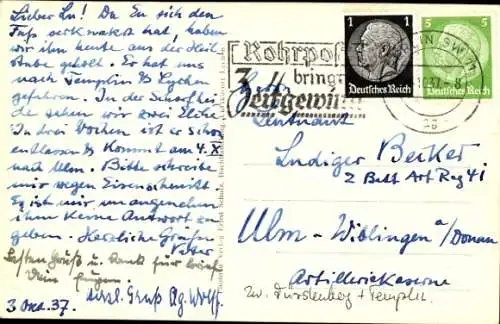 Lieber Lu! Da Eu sich den
Fuß verknaxt hat, haben
wir ihn heute aus der Heil
Stube geholt. Er hat uns
nach Templin & Lychen
gefahren. In der Schorfhei
de sahen wir zwei Elche
In drei Wochen ist er schon
entlassen & kommt am 4. X
nach Ulm. Bitte schreibe
mir wegen
Es ist mir unangenehm
ihm keine Antwort zu
geben. Herzliche Grüße
Vater
Besten Gruß u. Dank für Brief
Dein Jürgen.
herzl. Gruß Ag. Wolff
3 Okt. 37.
Rohrpost
bringt
Zeitgewinn
1 1
Deutsches Reich
5 5
Deutsches Reich
BERLIN SW 11
Leutnant
Ludiger Becker
2 Batt Art Reg 41
Ulm - Wiblingen a/Donau
Artilleriekaserne
zw. Fürstenberg + Templin